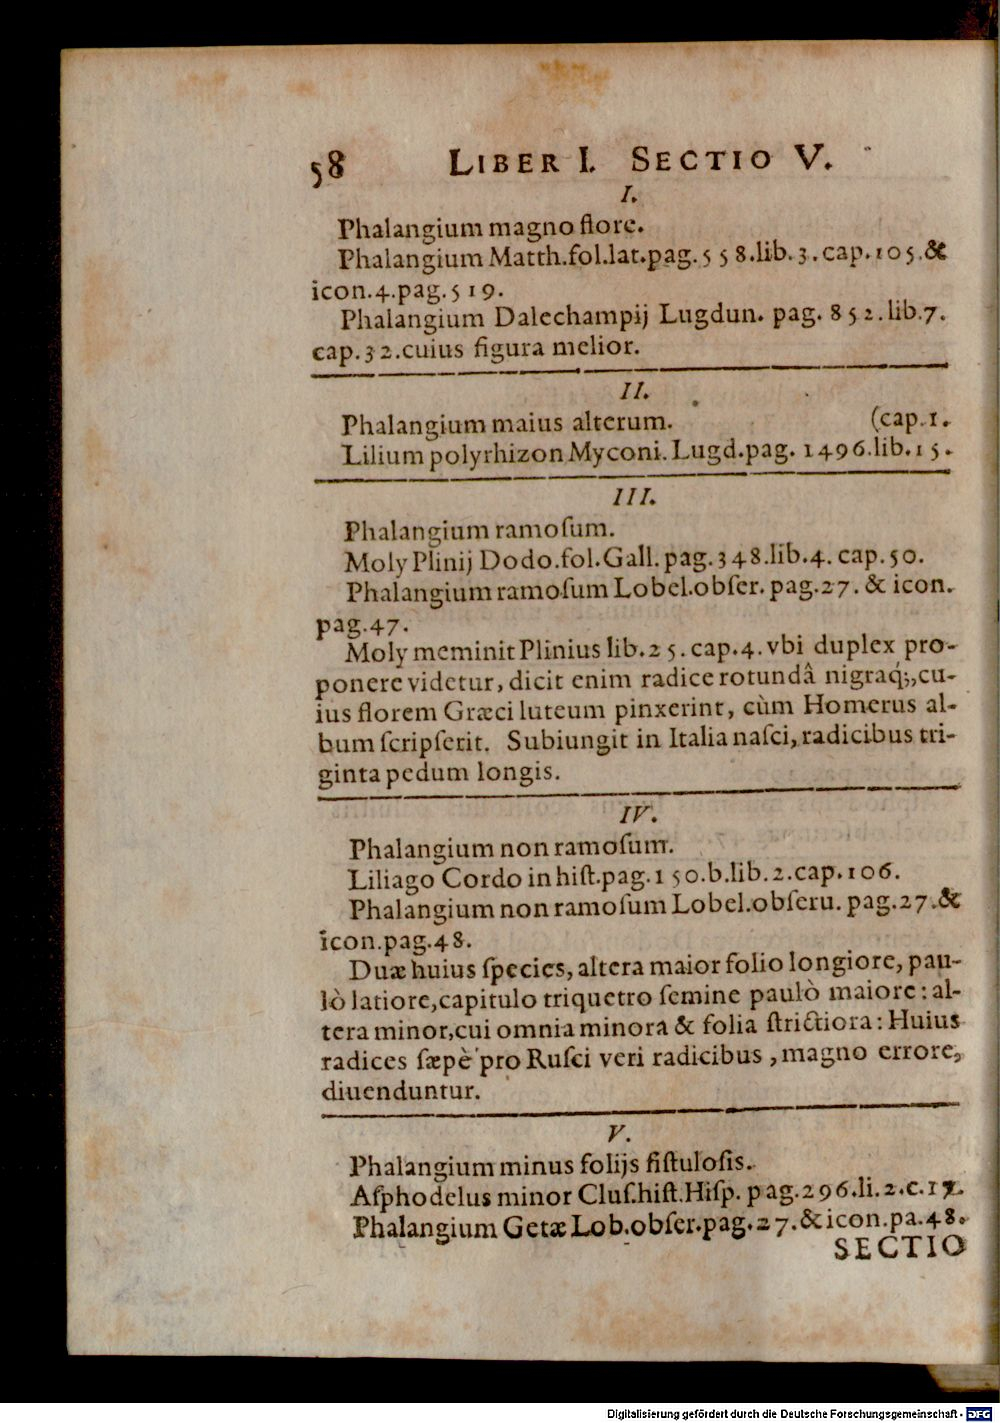 58 LIBER I. SECTIO V.
I.
Phalangium magno flore.
Phalangium Matth.fol.lat.pag.558.lib.3.cap.105.&
icon.4.pag.519.
Phalangium Dalechampij Lugdun. pag. 852.lib.7.
cap.32.cuius figura melior.
II.
Phalangium maius alterum. (cap.1.
Lilium polyrhizon Myconi. Lugd.pag. 1496.lib.15.
III.
Phalangium ramoſum.
Moly Plinij Dodo.fol.Gall.pag.348.lib.4. cap.50.
Phalangium ramoſum Lobel.obſer. pag.27. & icon.
pag.47.
Moly meminit Plinius lib.25.cap.4.vbi duplex pro-
ponere videtur, dicit enim radice rotundâ nigraq́;,cu-
ius florem Græci luteum pinxerint, cùm Homerus al-
bum ſcripſerit. Subiungit in Italia naſci, radicibus tri-
ginta pedum longis.
IV.
Phalangium non ramoſum.
Liliago Cordo in hiſt.pag.150.b.lib.2.cap.106.
Phalangium non ramoſum Lobel.obſeru. pag.27.&
icon.pag.48.
Duæ huius ſpecies, altera maior folio longiore, pau-
lò latiore,capitulo triquetro ſemine paulò maiore: al-
tera minor,cui omnia minora & folia ſtrictiora: Huius
radices ſæpè pro Ruſci veri radicibus, magno errore,
diuenduntur.
V.
Phalangium minus folijs fiſtuloſis.
Aſphodelus minor Cluſ.hiſt.Hiſp. pag.296.li.2.c.17.
Phalangium Getæ Lob.obſer.pag.27.& icon.pa.48.
SECTIO
Digitalisierung gefördert durch die Deutsche Forschungsgemeinschaft - DFG